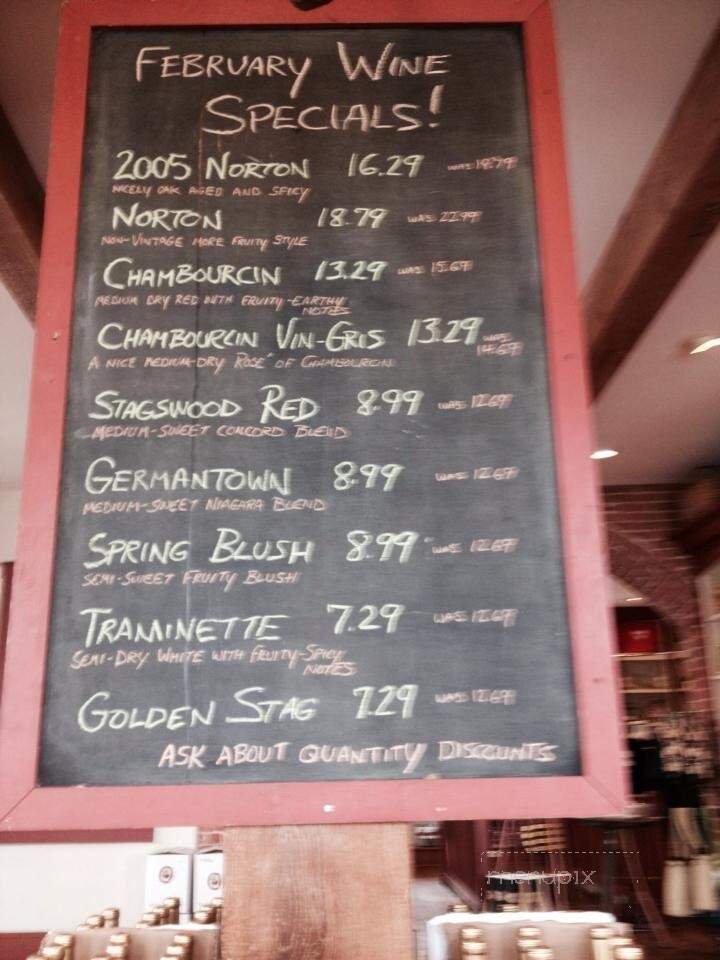 FEBRUARY WINE
SPECIALS!
2005 NORTON 16.29
NICELY OAK AGED AND SPICY
NORTON 18.79 WAS 22.99
NON-VINTAGE MORE FRUITY STYLE
CHAMBOURCIN 13.29 WAS 15.69
MEDIUM DRY RED WITH FRUITY-EARTHY
NOTES
CHAMBOURCIN VIN-GRIS 13.29 WAS
A NICE MEDIUM-DRY ROSE' OF CHAMBOURCIN
STAGSWOOD RED 8.99 WAS 12.69
MEDIUM-SWEET CONCORD BLEND
GERMANTOWN 8.99 WAS 12.69
MEDIUM-SWEET NIAGARA BLEND
SPRING BLUSH 8.99 WAS 12.69
SEMI-SWEET FRUITY BLUSH
TRAMINETTE 7.29 WAS 12.69
SEMI-DRY WHITE WITH FRUITY-SPICY
NOTES
GOLDEN STAG 7.29 WAS 12.69
ASK ABOUT QUANTITY DISCOUNTS
menupix